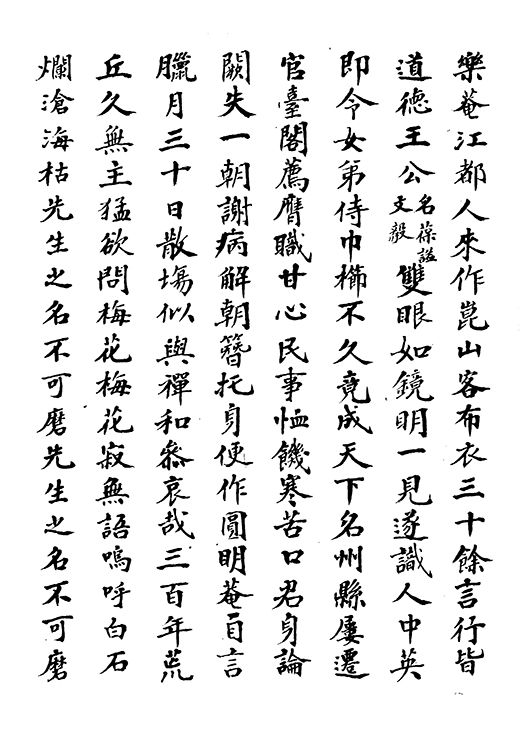 樂菴江都人來作崑山客布衣三十餘言行皆
道德王公名葆謚文毅雙眼如鏡明一見遂識人中英
即令女弟侍巾櫛不久竟成天下名州縣屢遷
官臺閣薦膺職甘心民事恤饑寒苦口君身論
闕失一朝謝病解朝簪托身便作圓明菴一言
臘月三十日散場似與禪和叅哀哉三百年荒
丘久無主猛欲問梅花梅花寂無語嗚呼白石
爛滄海枯先生之名不可磨先生之名不可磨